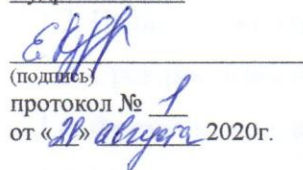 (подпись)
протокол № 1
от «    » августа 2020г.